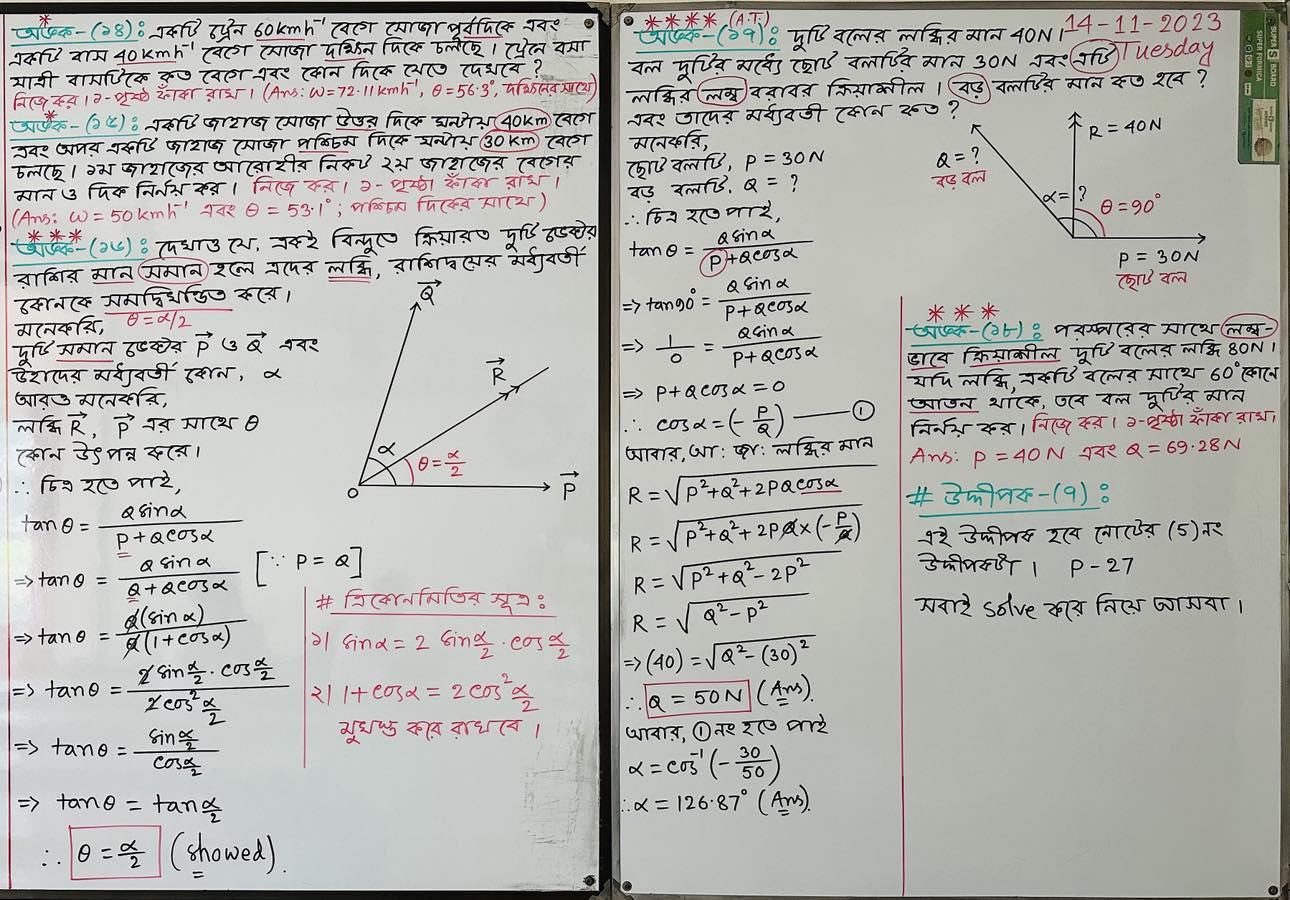 অংক-(১৪): একটি ট্রেন 60kmh⁻¹ বেগে সোজা পূর্বদিকে এবং
একটি বাস 40kmh⁻¹ বেগে সোজা দক্ষিন দিকে চলছে। ট্রেনে বসা
যাত্রী বাসটিকে কত বেগে এবং কোন দিকে যেতে দেখবে?
নিজে কর। ১-পৃষ্ঠা ফাঁকা রাখ। (Ans: W=72.11kmh⁻¹, θ=56.3°, দক্ষিনের সাথে)
অংক-(১৫): একটি জাহাজ সোজা উত্তর দিকে ঘন্টায় 40km বেগে
এবং অপর একটি জাহাজ সোজা পশ্চিম দিকে ঘন্টায় 30km বেগে
চলছে। ১ম জাহাজের আরোহীর নিকট ২য় জাহাজের বেগের
মান ও দিক নির্নয় কর। নিজে কর। ১-পৃষ্ঠা ফাঁকা রাখ।
(Ans: W=50kmh⁻¹ এবং θ=53.1°; পশ্চিম দিকের সাথে)
***
অংক-(১৬): দেখাও যে, একই বিন্দুতে ক্রিয়ারত দুটি ভেক্টর
রাশির মান সমান হলে এদের লব্ধি, রাশিদ্বয়ের মধ্যবর্তী
কোনকে সমদ্বিখন্ডিত করে।
θ=α/2
মনেকরি,
দুটি সমান ভেক্টর P⃗ ও Q⃗ এবং
উহাদের মধ্যবর্তী কোন, α
আরও মনেকরি,
লব্ধি R⃗, P⃗ এর সাথে θ
কোন উৎপন্ন করে।
∴ চিত্র হতে পাই,
tanθ = Qsinα/(P+Qcosα)
=> tanθ = Qsinα/(Q+Qcosα) [∵ P = Q]
=> tanθ = Q(sinα)/Q(1+cosα)
=> tanθ = 2sin(α/2)·cos(α/2)/2cos²(α/2)
=> tanθ = sin(α/2)/cos(α/2)
=> tanθ = tan(α/2)
∴ θ = α/2 (showed).
Q⃗
R⃗
α
θ=α/2
O
P⃗
# ত্রিকোনমিতির সূত্র:
১) sinα = 2 sin(α/2)·cos(α/2)
২) 1+cosα = 2cos²(α/2)
মুখস্ত করে রাখবে।
**** (A.T.)
14-11-2023
Tuesday
অংক-(১৭): দুটি বলের লব্ধির মান 40N।
বল দুটির মধ্যে ছোট বলটির মান 30N এবং এটি
লব্ধির লম্ব বরাবর ক্রিয়াশীল। বড় বলটির মান কত হবে?
এবং তাদের মধ্যবর্তী কোন কত?
মনেকরি,
ছোট বলটি, P = 30N
বড় বলটি, Q = ?
∴ চিত্র হতে পাই,
tanθ = Qsinα/(P+Qcosα)
=> tan90° = Qsinα/(P+Qcosα)
=> 1/0 = Qsinα/(P+Qcosα)
=> P+Qcosα = 0
∴ cosα = (-P/Q) ——①
আবার, আ: জা: লব্ধির মান
R = √(P²+Q²+2PQcosα)
R = √(P²+Q²+2PQ×(-P/Q))
R = √(P²+Q²-2P²)
R = √(Q²-P²)
=> (40) = √(Q²-(30)²)
∴ Q = 50N (Ans).
আবার, ①নং হতে পাই
α = cos⁻¹(-30/50)
∴ α = 126.87° (Ans).
R = 40N
Q = ?
বড় বল
α = ?
θ = 90°
P = 30N
ছোট বল
***
অংক-(১৮): পরস্পরের সাথে লম্ব-
ভাবে ক্রিয়াশীল দুটি বলের লব্ধি 80N।
যদি লব্ধি, একটি বলের সাথে 60° কোনে
আনত থাকে, তবে বল দুটির মান
নির্নয় কর। নিজে কর। ১-পৃষ্ঠা ফাঁকা রাখ।
Ans: P = 40N এবং Q = 69.28N
# উদ্দীপক-(৭):
এই উদ্দীপক হবে নোটের (5)নং
উদ্দীপকটা। P-27
সবাই solve করে নিয়ে আসবা।
SUPER BOARD
SUPER FORMICA